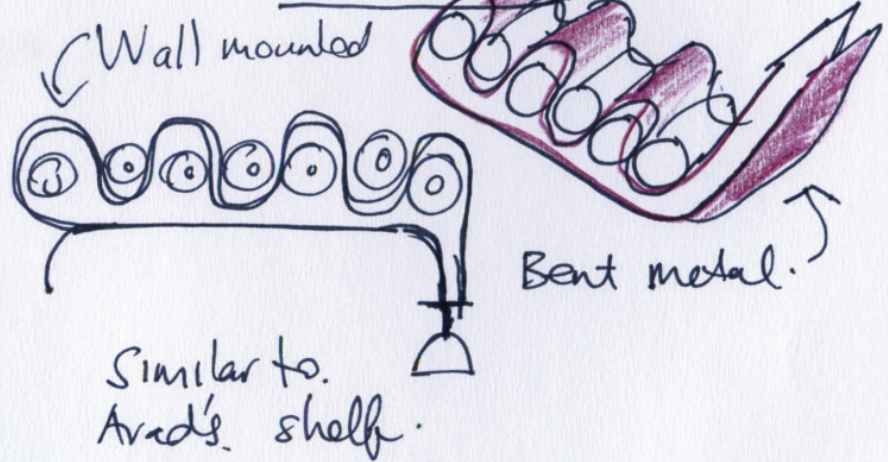 Wall mounted
Bent metal.
Similar to.
Arad's shelf.